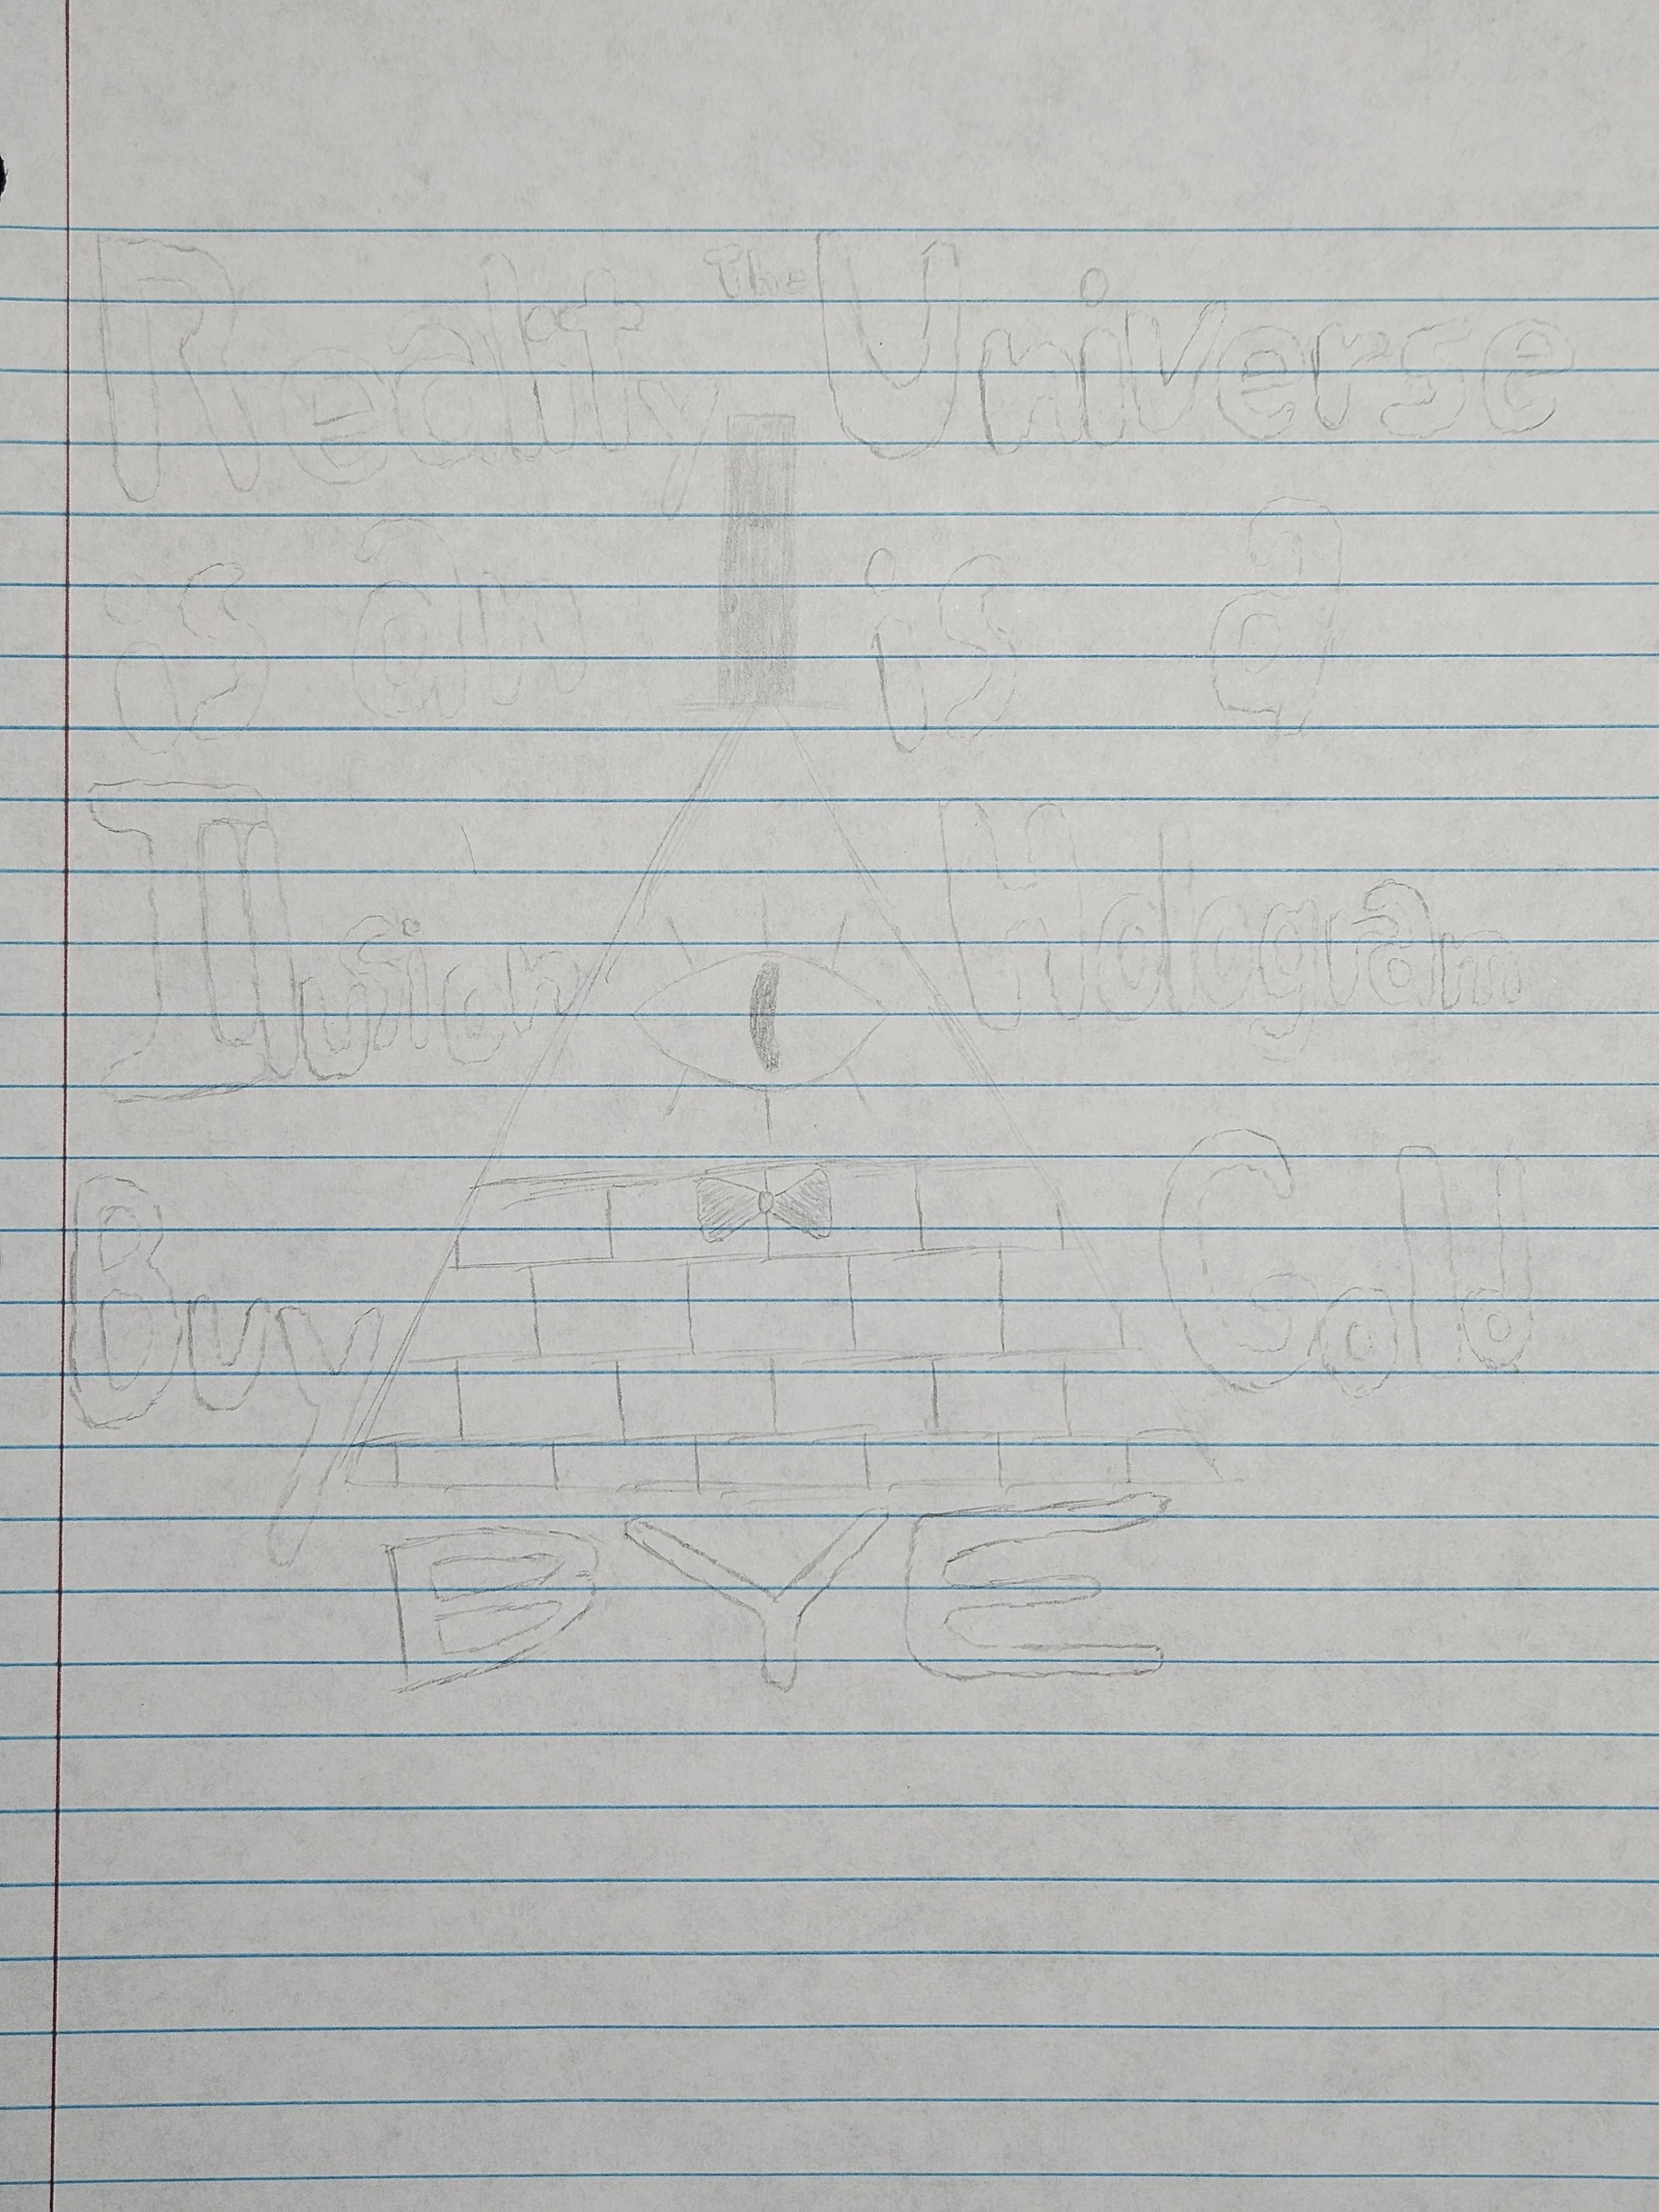 Reality The Universe
is an is a
Illusion Hologram
Buy Gold
BYE